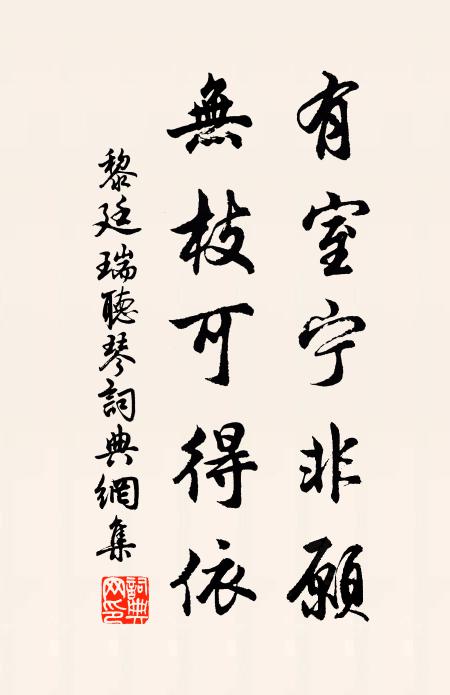 有室宁非願
無枝可得依
黎廷瑞聽琴詞典網集
詞典網印